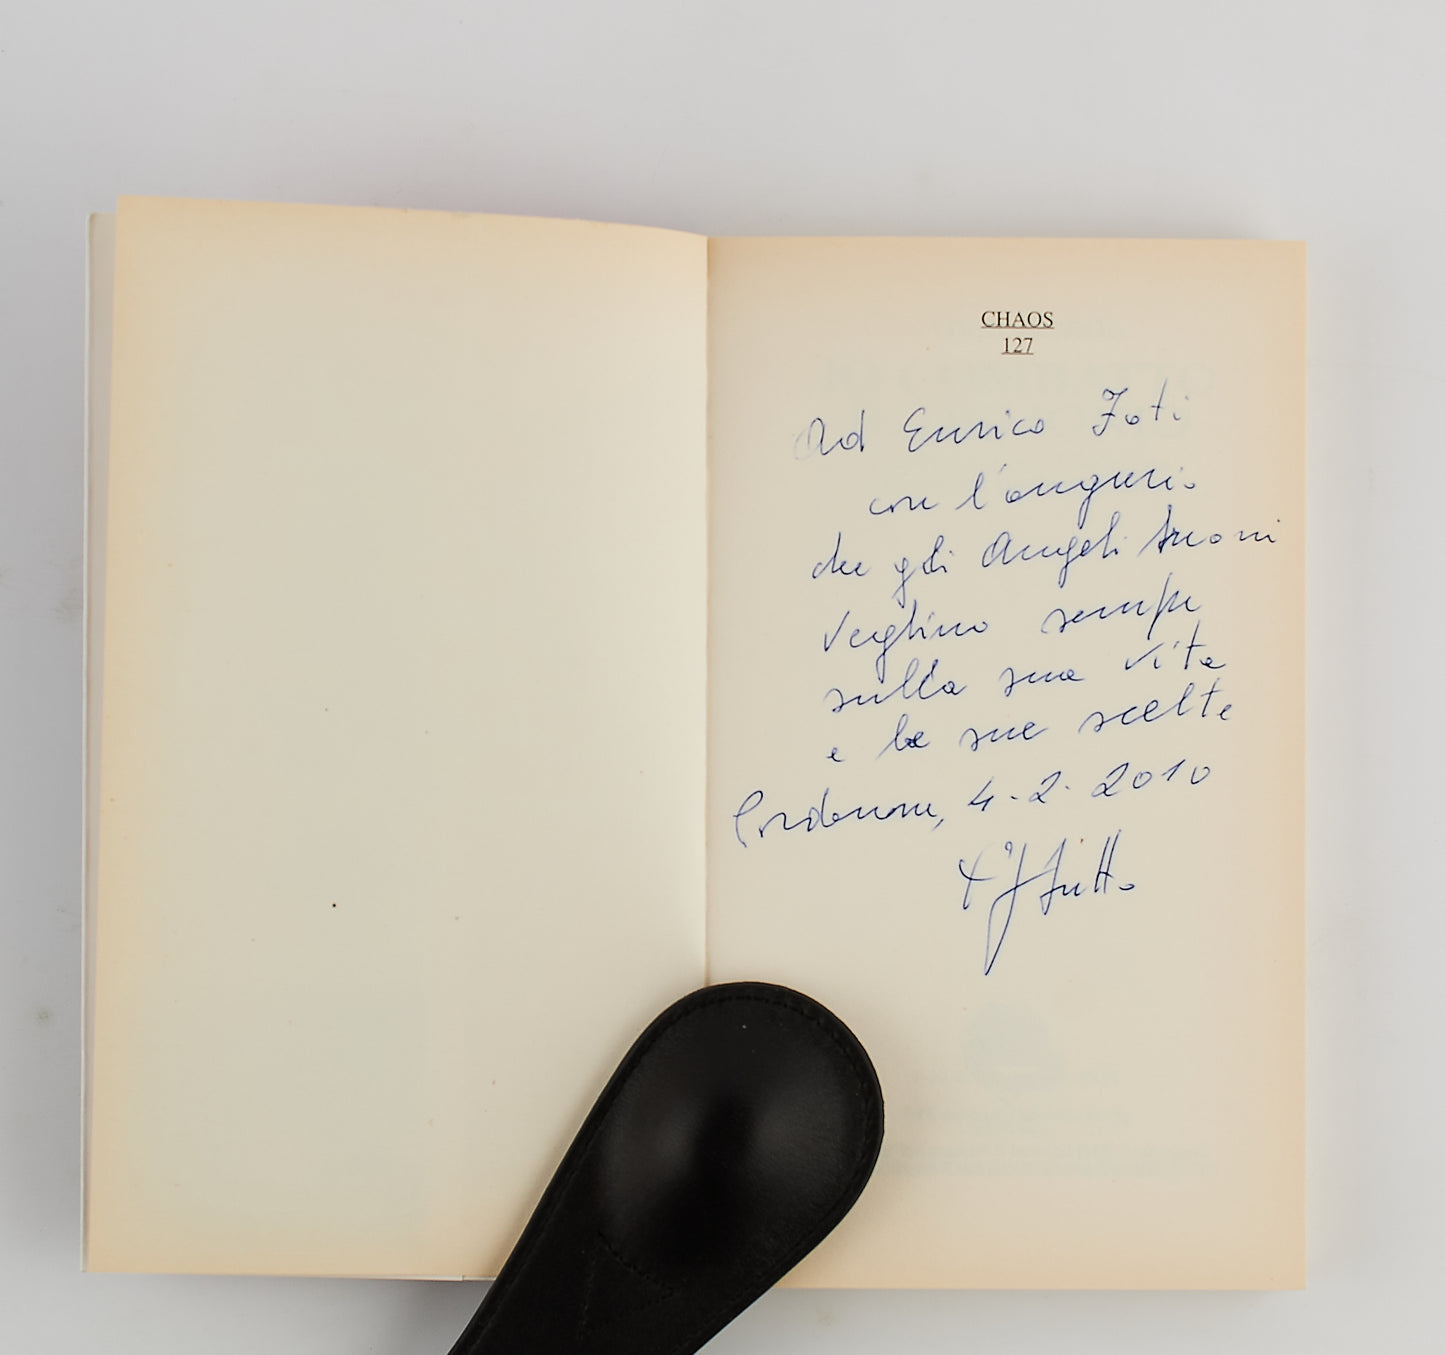 CHAOS
127
Ad Enrico Foti
con l'augurio
che gli Angeli buoni
veglino sempre
sulla sua vita
e le sue scelte
Pordenone, 4-2-2010